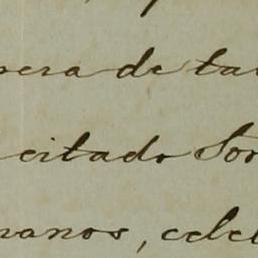 pera de ta
citado Sor
manos, cele